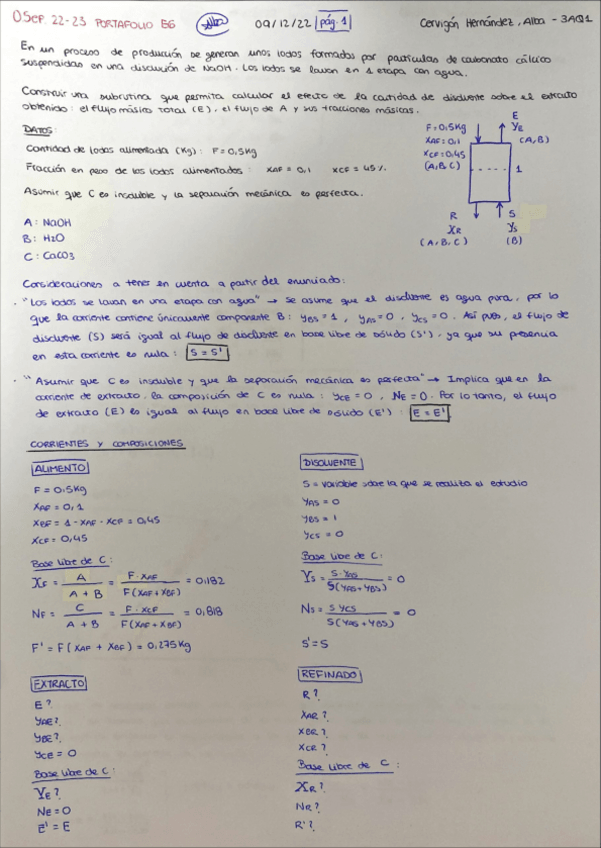 OSep 22-23 PORTAFOLIO E6 09/12/22 pág. 1 Cervigón Hernández, Alba - 3AQ1
En un proceso de producción se generan unos lodos formados por partículas de carbonato cálcico
suspendidas en una disolución de NaOH. Los lodos se lavan en 1 etapa con agua.
Construir una subrutina que permita calcular el efecto de la cantidad de disolvente sobre el extracto
obtenido: el flujo másico total (E), el flujo de A y sus fracciones másicas.
DATOS:
Cantidad de lodos alimentada (Kg): F = 0,5Kg
Fracción en peso de los lodos alimentados: XAF = 0,1 XCF = 45%
Asumir que C es insoluble y la separación mecánica es perfecta.
F = 0,5Kg
XAF = 0,1
XCF = 0,45
(A,B,C)
E
YE
(A,B)
1
R
XR
(A,B,C)
S
YS
(B)
A: NaOH
B: H2O
C: CaCO3
Consideraciones a tener en cuenta a partir del enunciado:
· "Los lodos se lavan en una etapa con agua" → Se asume que el disolvente es agua pura, por lo
que la corriente contiene únicamente componente B: yBS = 1, yAS = 0, yCS = 0. Así pues, el flujo de
disolvente (S) será igual al flujo de disolvente en base libre de sólido (S'), ya que su presencia
en esta corriente es nula: S = S'
· "Asumir que C es insoluble y que la separación mecánica es perfecta" → Implica que en la
corriente de extracto, la composición de C es nula: yCE = 0, NE = 0. Por lo tanto, el flujo
de extracto (E) es igual al flujo en base libre de sólido (E'): E = E'
CORRIENTES Y COMPOSICIONES
ALIMENTO
F = 0.5Kg
XAF = 0,1
XBF = 1 - XAF - XCF = 0,45
XCF = 0,45
Base libre de C:
XF = A / (A + B) = F·XAF / F(XAF + XBF) = 0,182
NF = C / (A + B) = F·XCF / F(XAF + XBF) = 0,818
F' = F(XAF + XBF) = 0,275Kg
DISOLVENTE
S = variable sobre la que se realiza el estudio
yAS = 0
yBS = 1
yCS = 0
Base libre de C:
YS = S·yAS / S(yAS + yBS) = 0
NS = S yCS / S(yAS + yBS) = 0
S' = S
EXTRACTO
E?
yAE?
yBE?
yCE = 0
Base libre de C:
YE?
NE = 0
E' = E
REFINADO
R?
XAR?
XBR?
XCR?
Base libre de C:
XR?
NR?
R'?